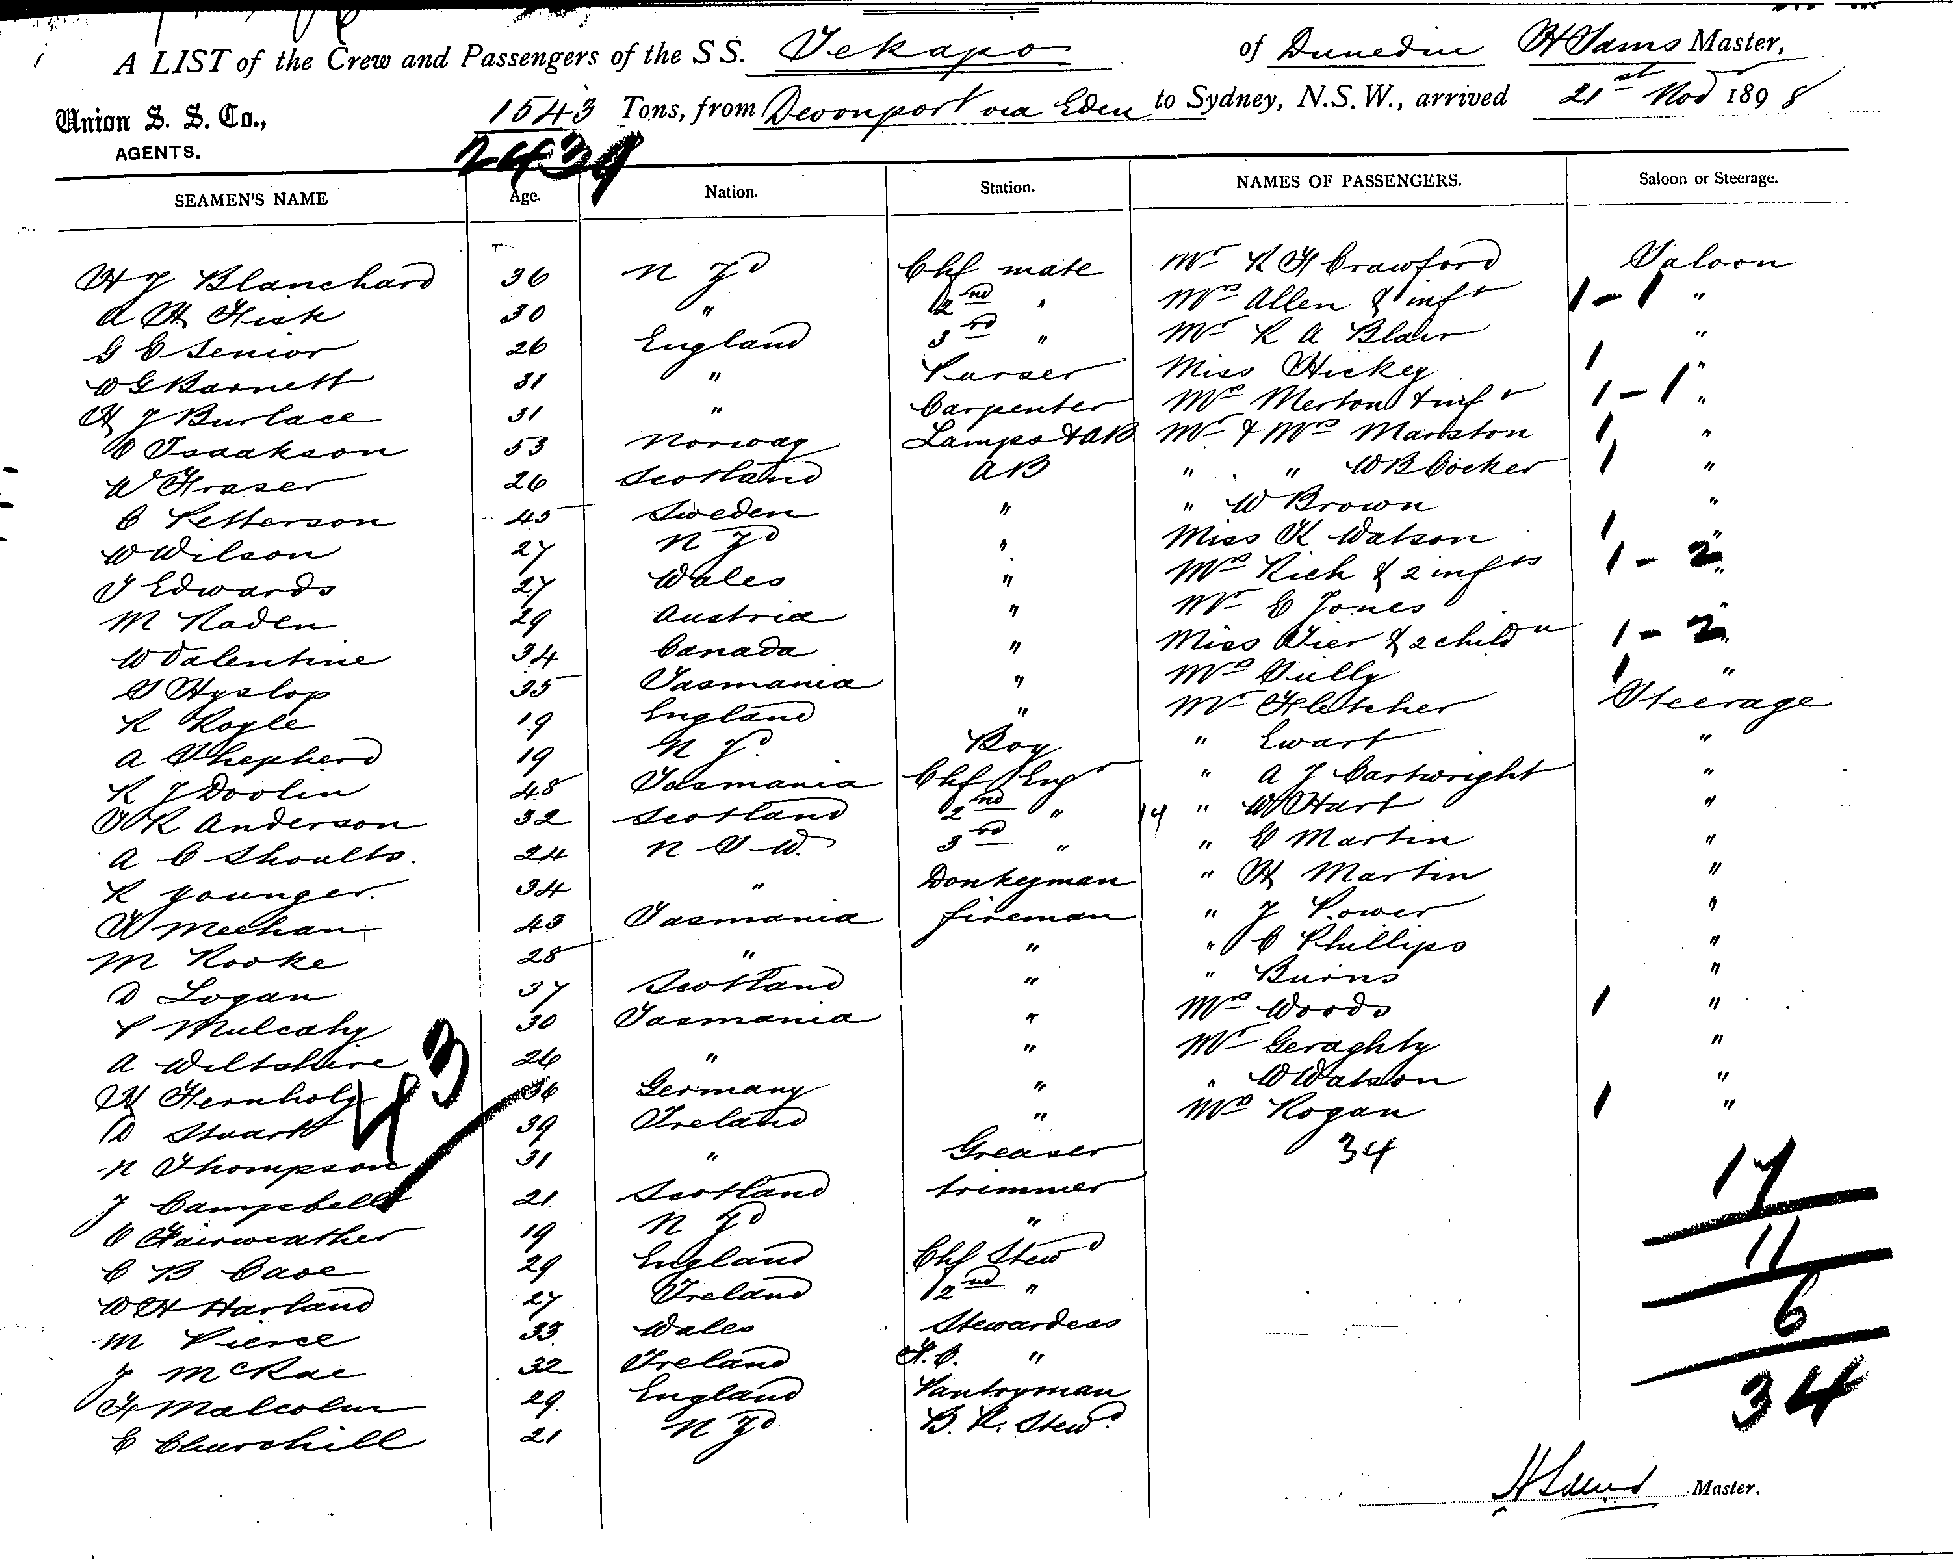 A LIST of the Crew and Passengers of the S S. Tekapo of Dunedin H Sams Master,
Union S. S. Co., 1543 Tons, from Devonport via Eden to Sydney, N.S.W., arrived 21st Nov 1898
AGENTS. 2439
SEAMEN'S NAME Age. Nation. Station. NAMES OF PASSENGERS. Saloon or Steerage.
H J Blanchard 36 N Zd Chf mate Mr R H Crawford Saloon
A H Fisk 30 " 2nd " Mrs Allen & inft 1-1 "
G C Senior 26 England 3rd " Mr R A Blair "
W G Barnett 31 " Purser Miss Hickey 1 "
H J Burlace 31 " Carpenter Mrs Merton & inft 1-1 "
C Isaakson 53 Norway Lamps & AB Mr & Mrs Marston 1 "
W Fraser 26 Scotland AB " " W B Cocker 1 "
C Petterson 45 Sweden " " W Brown "
W Wilson 27 N Zd " Miss K Watson 1 "
J Edwards 27 Wales " Mrs Rich & 2 infts 1-2 "
M Raden 29 Austria " Mr C Jones "
W Valentine 34 Canada " Miss Tier & 2 childn 1-2 "
G Hyslop 35 Tasmania " Mrs Tully 1 "
R Royle 19 England " Mr Fletcher Steerage
A Shepherd 19 N Z. Boy " Ewart "
R J Doolin 48 Tasmania Chf Engr " A J Cartwright "
J R Anderson 32 Scotland 2nd " 14 " W Hart "
A C Shoults. 24 N S W. 3rd " " C Martin "
R Younger. 34 " Donkeyman " H Martin "
Meehan 43 Tasmania fireman " J Power "
M Rooke 28 " " " C Phillips "
D Logan 37 Scotland " " Burns "
P Mulcahy 30 Tasmania " Mrs Woods 1 "
A Wiltshire 26 " " Mr Geraghty "
H Fernholz 36 Germany " " W Watson "
D Stuart 39 Ireland " Mrs Rogan 1 "
43
N Thompson 31 " Greaser 34
J Campbell 21 Scotland trimmer 17
C Fairweather 19 N Zd "
C B Cave 29 England Chf Stewd 11
W H Harland 27 Ireland 2nd "
M Pierce 33 Wales Stewardess 6
J McRae 32 Ireland F.C. "
F Malcolm 29 England Pantryman 34
C Churchill 21 N Zd B. R. Stewd
H Sams Master.